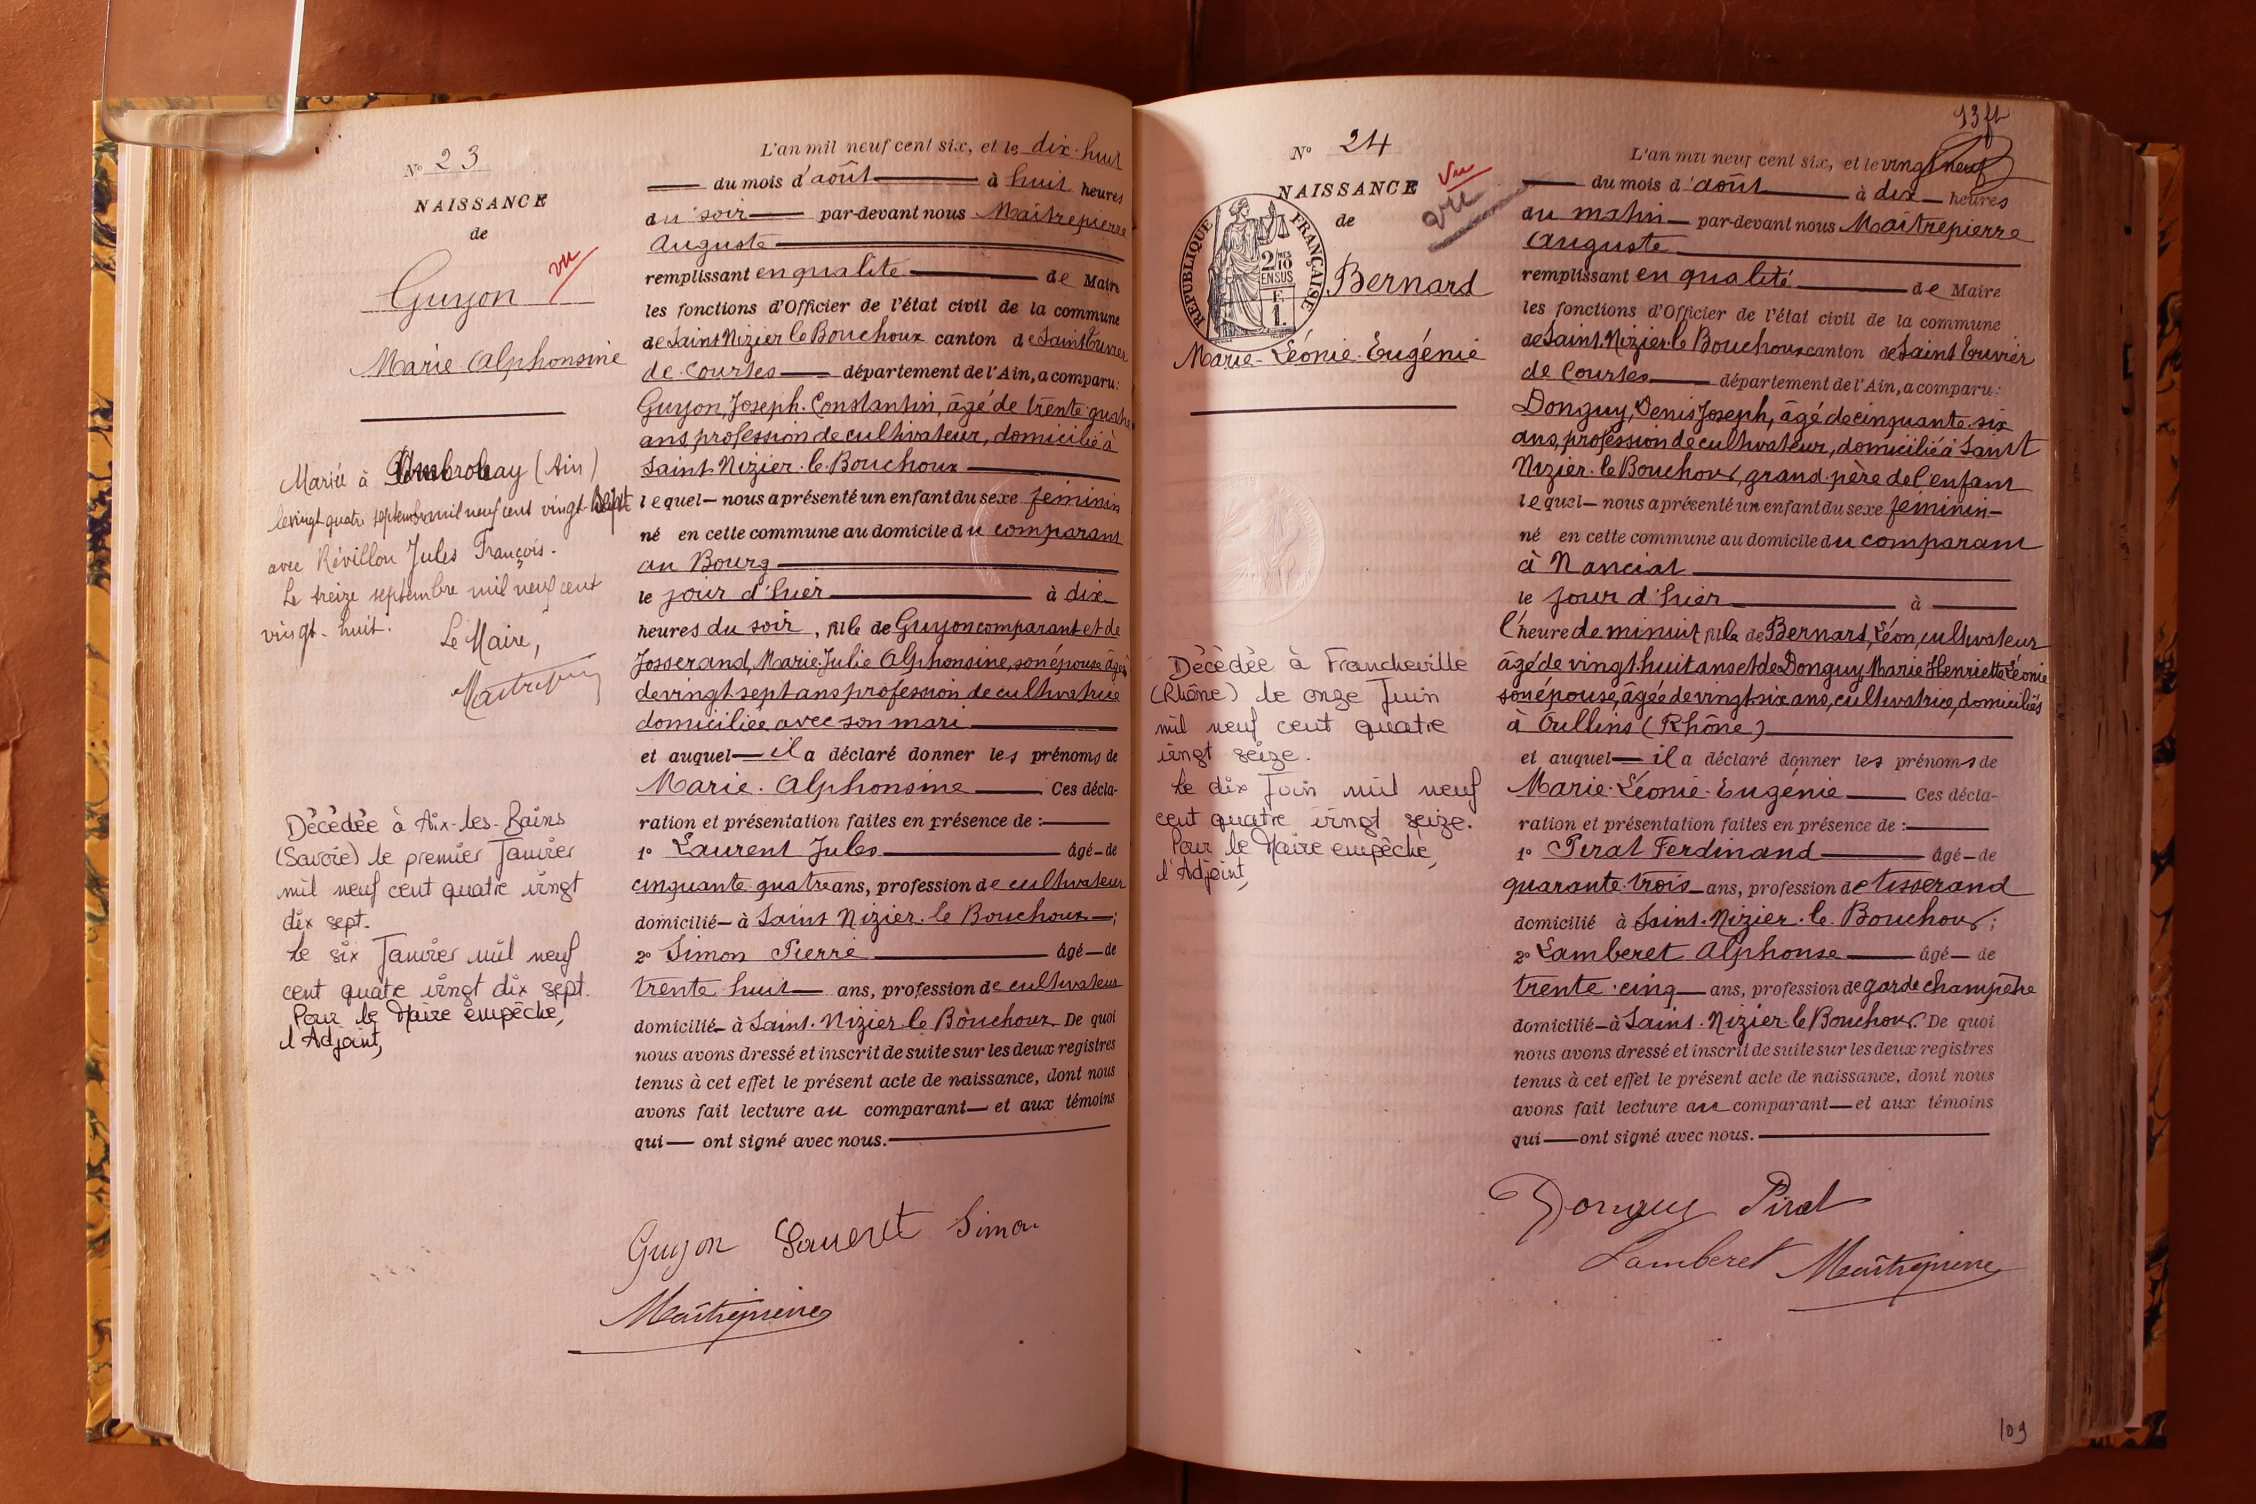 N° 23
NAISSANCE
de
vu
Guyon
Marie Alphonsine
Mariée à Ambronay (Ain)
le vingt quatre septembre mil neuf cent vingt-sept
avec Révillon Jules François.
Le treize septembre mil neuf cent
vingt-huit.
Le Maire,
Maîtrepierre
Décèdée à Aix-les-Bains
(Savoie) le premier Janvier
mil neuf cent quatre vingt
dix sept.
Le six Janvier mil neuf
cent quatre vingt dix sept.
Pour le Maire empêché,
l'Adjoint,
L'an mil neuf cent six, et le dix-huit
du mois d'août à huit heures
du soir par-devant nous Maîtrepierre
Auguste
remplissant en qualité de Maire
les fonctions d'Officier de l'état civil de la commune
de Saint Nizier le Bouchoux canton de Saint Trivier
de Courtes département de l'Ain, a comparu:
Guyon, Joseph. Constantin, âgé de trente quatre
ans, profession de cultivateur, domicilié à
Saint Nizier-le-Bouchoux
lequel nous a présenté un enfant du sexe féminin
né en cette commune au domicile du comparant
au Bourg
le jour d'hier à dix
heures du soir, fille de Guyon comparant et de
Josserand, Marie Julie Alphonsine, son épouse âgée
de vingt sept ans profession de cultivatrice
domiciliée avec son mari
et auquel il a déclaré donner les prénoms de
Marie. Alphonsine Ces décla-
ration et présentation faites en présence de :
1° Laurent Jules âgé de
cinquante quatre ans, profession de cultivateur
domicilié à Saint Nizier-le Bouchoux ;
2° Simon Pierre âgé de
trente-huit ans, profession de cultivateur
domicilié à Saint-Nizier-le Bouchoux. De quoi
nous avons dressé et inscrit de suite sur les deux registres
tenus à cet effet le présent acte de naissance, dont nous
avons fait lecture au comparant et aux témoins
qui ont signé avec nous.
Guyon Laurent Simon
Maîtrepierre
N° 24
NAISSANCE
de
Vu
Vu
RÉPUBLIQUE FRANÇAISE
2/10 MES
EN SUS
F.
1.
Bernard
Marie-Léonie-Eugénie
Décèdée à Francheville
(Rhône) le onze Juin
mil neuf cent quatre
vingt seize.
Le dix Juin mil neuf
cent quatre vingt seize.
Pour le Maire empêché,
l'Adjoint,
L'an mil neuf cent six, et le vingt neuf
du mois d'août à dix heures
du matin par-devant nous Maîtrepierre
Auguste
remplissant en qualité de Maire
les fonctions d'Officier de l'état civil de la commune
de Saint-Nizier-le Bouchoux canton de Saint Trivier
de Courtes département de l'Ain, a comparu:
Donguy, Denis Joseph, âgé de cinquante-six
ans, profession de cultivateur, domicilié à Saint
Nizier-le Bouchoux, grand-père de l'enfant
lequel nous a présenté un enfant du sexe féminin
né en cette commune au domicile du comparant
à Nanciat
le jour d'hier à
l'heure de minuit fille de Bernard, Léon, cultivateur
âgé de vingt-huit ans et de Donguy Marie Henriette Léonie
son épouse, âgée de vingt-six ans, cultivatrice, domiciliés
à Oullins (Rhône)
et auquel il a déclaré donner les prénoms de
Marie-Léonie-Eugénie Ces décla-
ration et présentation faites en présence de :
1° Pirat Ferdinand âgé de
quarante-trois ans, profession de tisserand
domicilié à Saint-Nizier-le-Bouchoux;
2° Lamberet Alphonse âgé de
trente-cinq ans, profession de garde champêtre
domicilié à Saint-Nizier-le Bouchoux. De quoi
nous avons dressé et inscrit de suite sur les deux registres
tenus à cet effet le présent acte de naissance, dont nous
avons fait lecture au comparant et aux témoins
qui ont signé avec nous.
Donguy Pirat
Lamberet Maîtrepierre
109